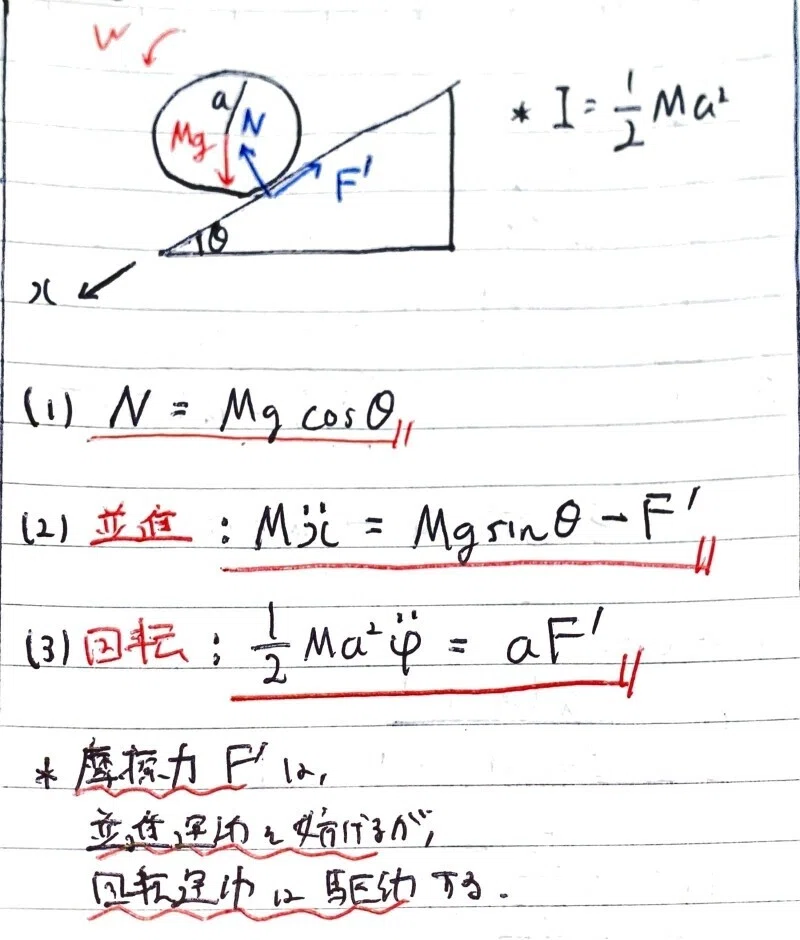 W
a
N
Mg
F'
θ
x
* I = 1/2 Ma²
(1) N = Mg cosθ
(2) 並進 : Mẍ = Mg sinθ - F'
(3) 回転 : 1/2 Ma² φ̈ = aF'
* 摩擦力 F' は,
並進運動を妨げるが,
回転運動は駆動する.